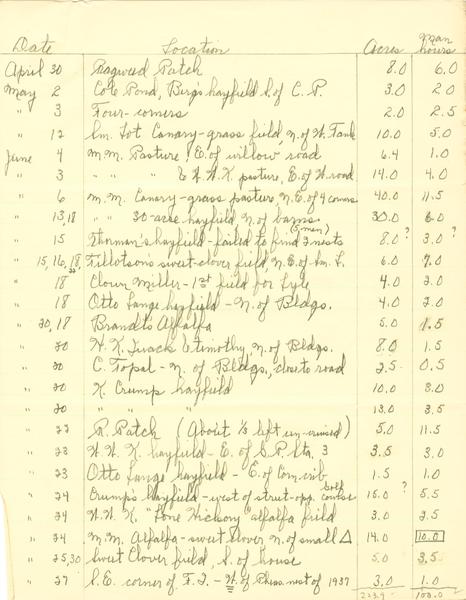 Date Location Acres Man hours
April 30 Ragweed Patch 8.0 6.0
May 2 Cote Pond, Berg's hayfield S. of C.P. 3.0 2.0
" 3 Four-corners 2.0 2.5
" 12 Lm. Lot Canary-grass field, N. of W. Tank 10.0 5.0
June 4 M.M. Pasture, E. of willow road 6.4 1.0
" 3 " " E W.W.K pasture, E. of W. road 14.0 4.0
" 6 M.M. Canary-grass pasture, N.E. of 4 corners 40.0 11.5
" 13,18 " " 30-acre hayfield N. of barns 30.0 6.0
" 15 Therman's hayfield - failed to find 2 nests (5 men) 8.0 ? 3.0 ?
" 15,16,18,22 Tillotson's sweet-clover field N.E. of Lm. L. 6.0 7.0
" 18 Clown Miller - 1st field for Lyle 4.0 2.0
" 18 Otto Lange hayfield - N. of Bldgs. 4.0 2.0
" 20,18 Brandt's Alfalfa 5.0 1.5
" 20 W.K. Quack & timothy N. of Bldgs. 8.0 1.5
" 20 C. Topal - N. of Bldgs., close to road 2.5 0.5
" 20 K. Crump hayfield 10.0 8.0
" 20 " " 13.0 3.5
" 22 R. Patch (About 1/3 left un-cruised) 5.0 11.5
" 23 W.W.K hayfield - E. of S.P. Sta. 3 3.5 3.0
" 23 Otto Lange hayfield - E. of Corn crib 1.5 1.0
" 24 Crump's hayfield - west of street - opp. Golf course 15.0 ? 5.5
" 24 W.W.K. "Lone Hickory" alfalfa field 3.0 2.5
" 24 M.M. Alfalfa - sweet clover N. of small Δ 14.0 10.0
" 25,30 Sweet Clover field, S. of house 5.0 3.5
" 27 S.E. corner of F.2 - W. of Pheas. nest of 1937 3.0 1.0
223.9 100.0